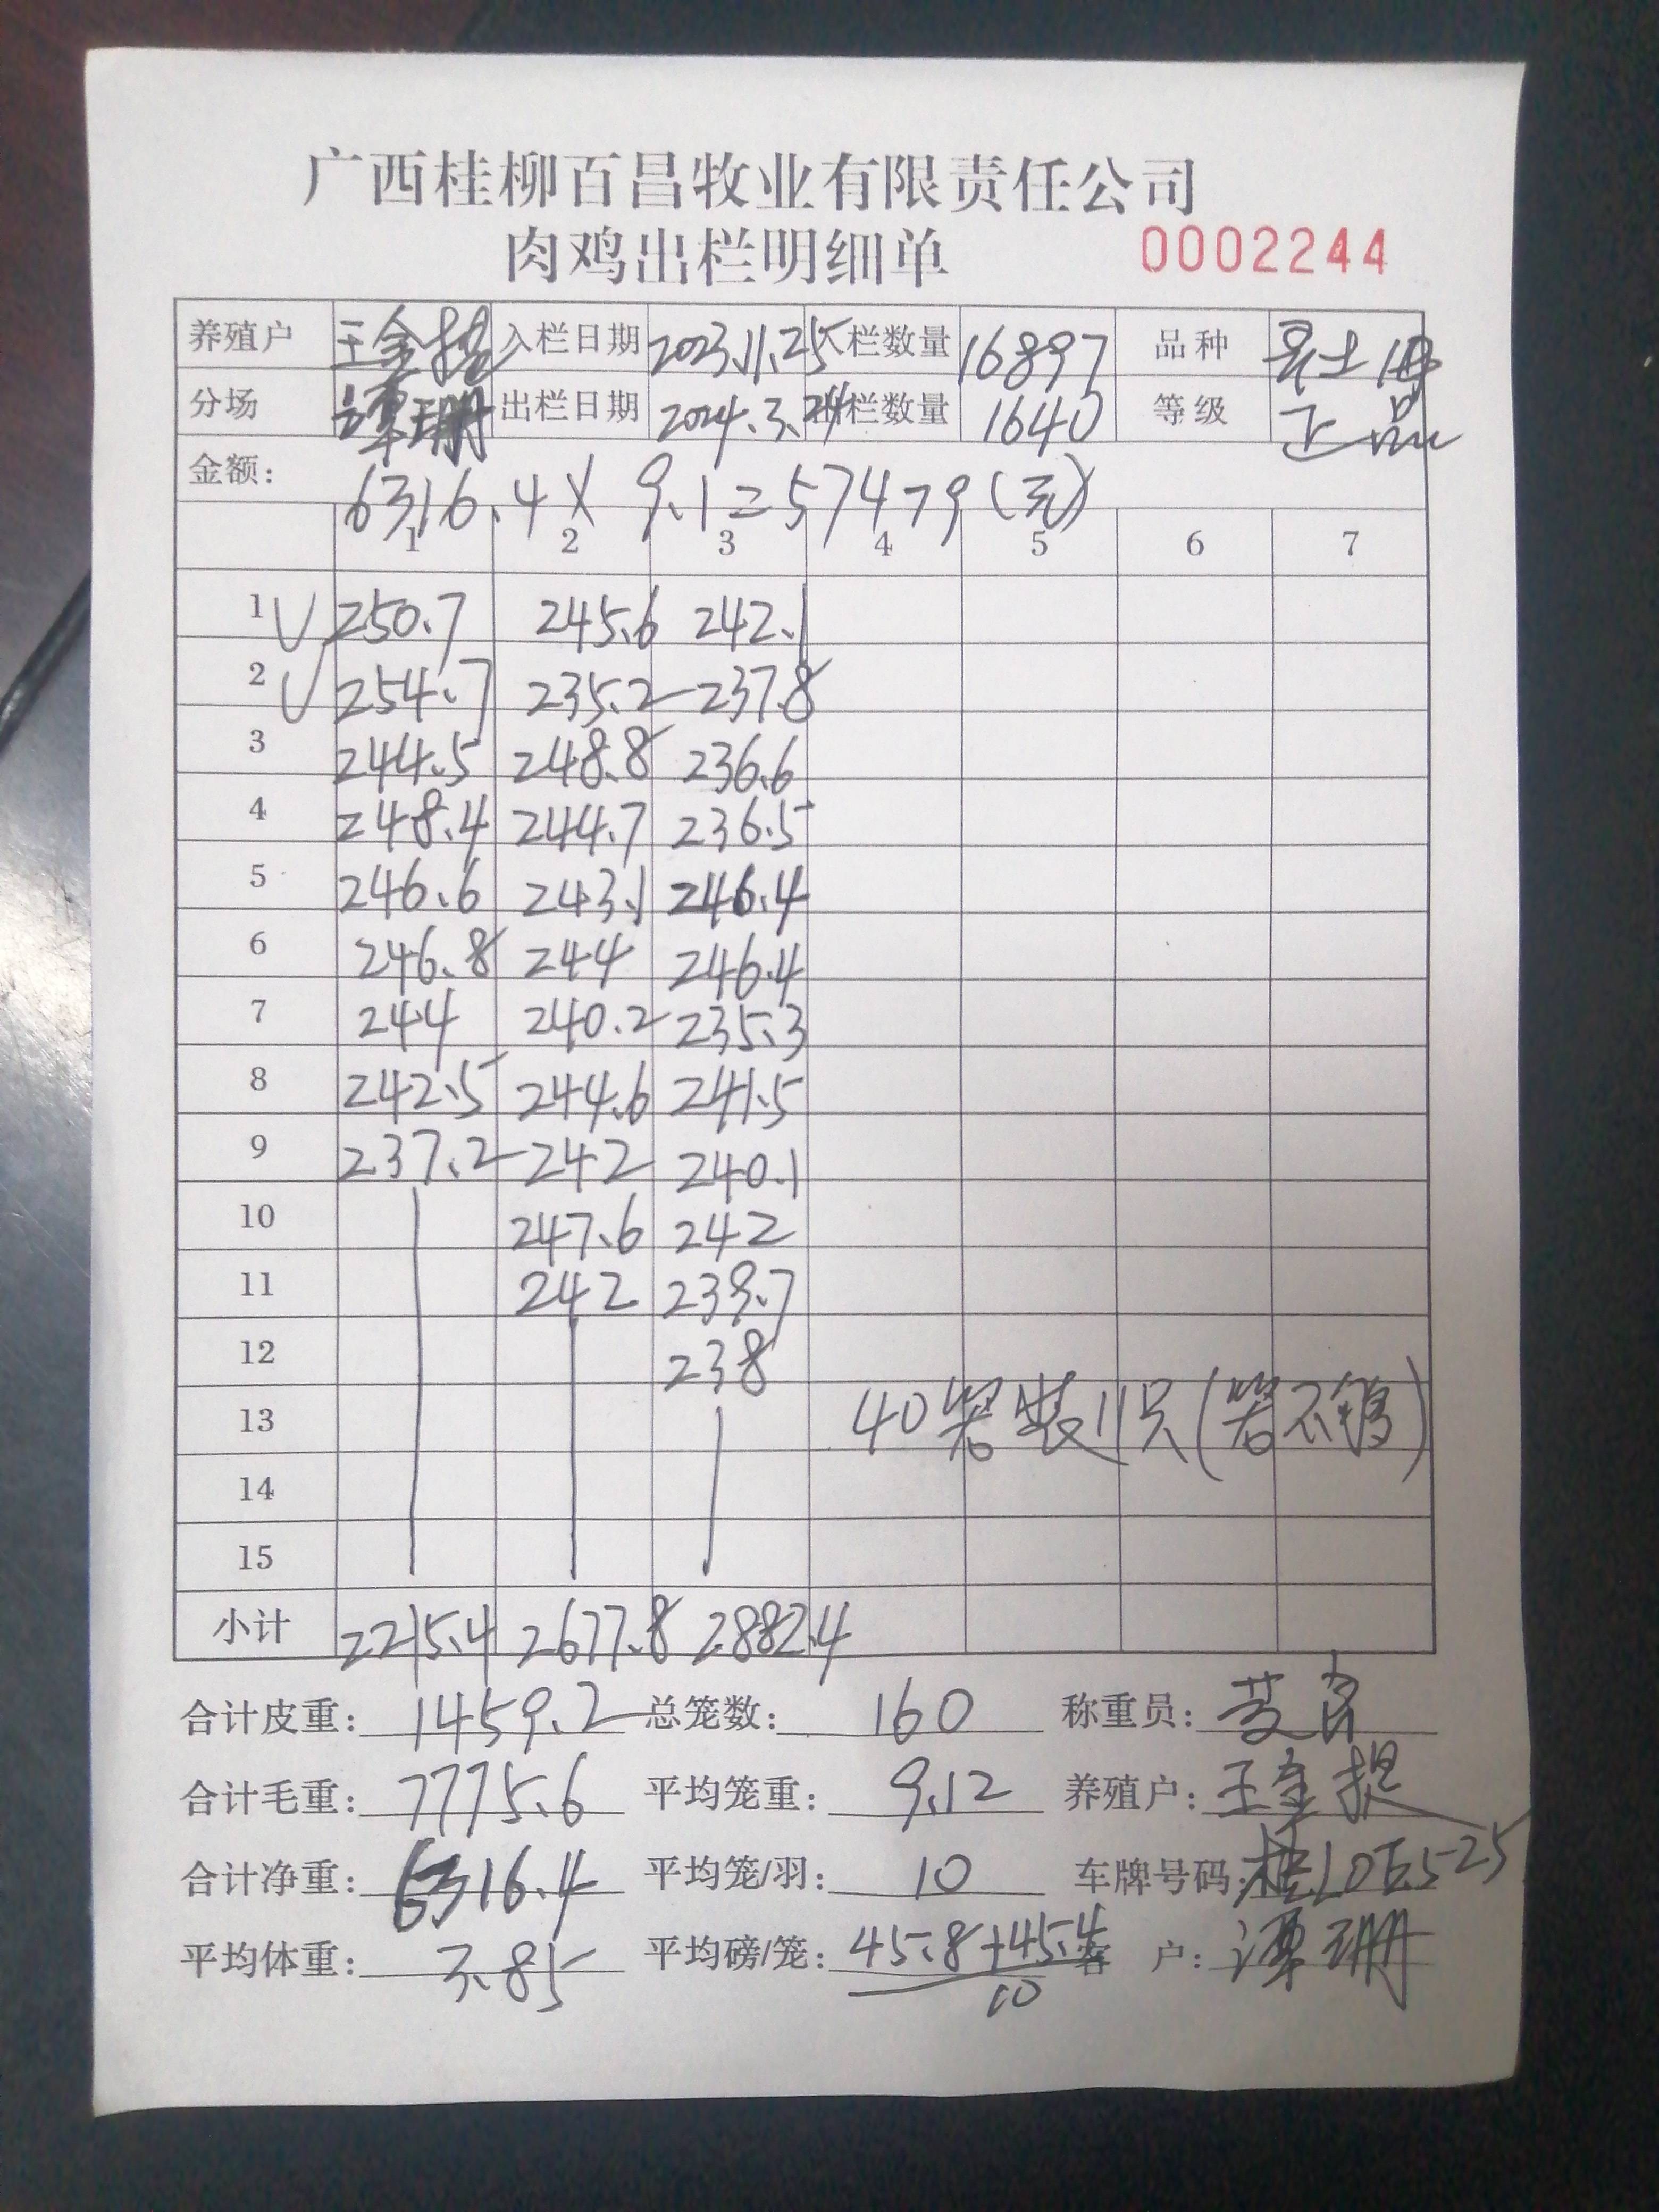 广西桂柳百昌牧业有限责任公司
肉鸡出栏明细单 0002244
养殖户 王金提 入栏日期 2023.11.25 入栏数量 16897 品种 土
分场 谭珊 出栏日期 2024.3.24 出栏数量 1640 等级 正品
金额: 6316.4X 9.1=57479(元)
1 2 3 4 5 6 7
1 250.7 245.6 242.1
2 254.7 235.2 237.8
3 244.5 248.8 236.6
4 248.4 244.7 236.5
5 246.6 243.1 246.4
6 246.8 244 246.4
7 244 240.2 235.3
8 242.5 244.6 241.5
9 237.2 242 240.1
10 247.6 242
11 242 239.7
12 238
13 40笼装11只(笼不够)
14
15
小计 2215.4 2677.8 2882.4
合计皮重: 1459.2 总笼数: 160 称重员:
合计毛重: 7775.6 平均笼重: 9.12 养殖户: 王金提
合计净重: 6316.4 平均笼/羽: 10 车牌号码:
平均体重: 3.85 平均磅/笼: 45.8+45.4 客 户: 谭珊
10